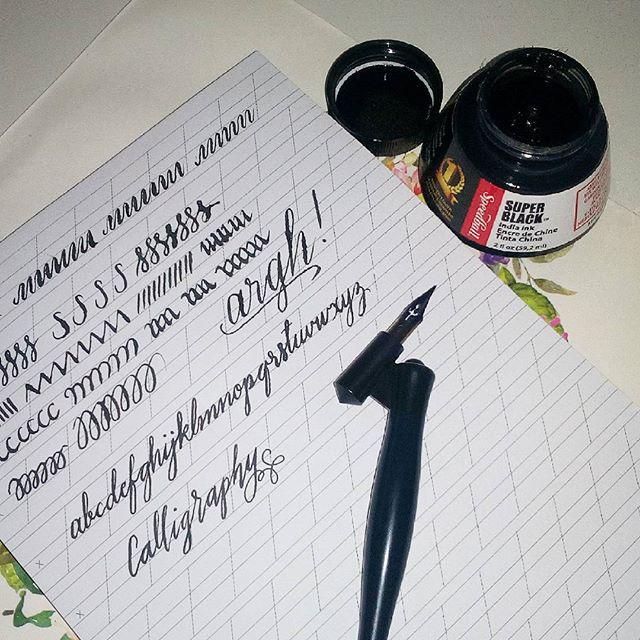 argh!
abcdefghijklmnopqrstuvwxyz
Calligraphy
Speedball
SUPER
BLACK™
India ink
Encre de Chine
Tinta China
2 fl oz (59,2 ml)